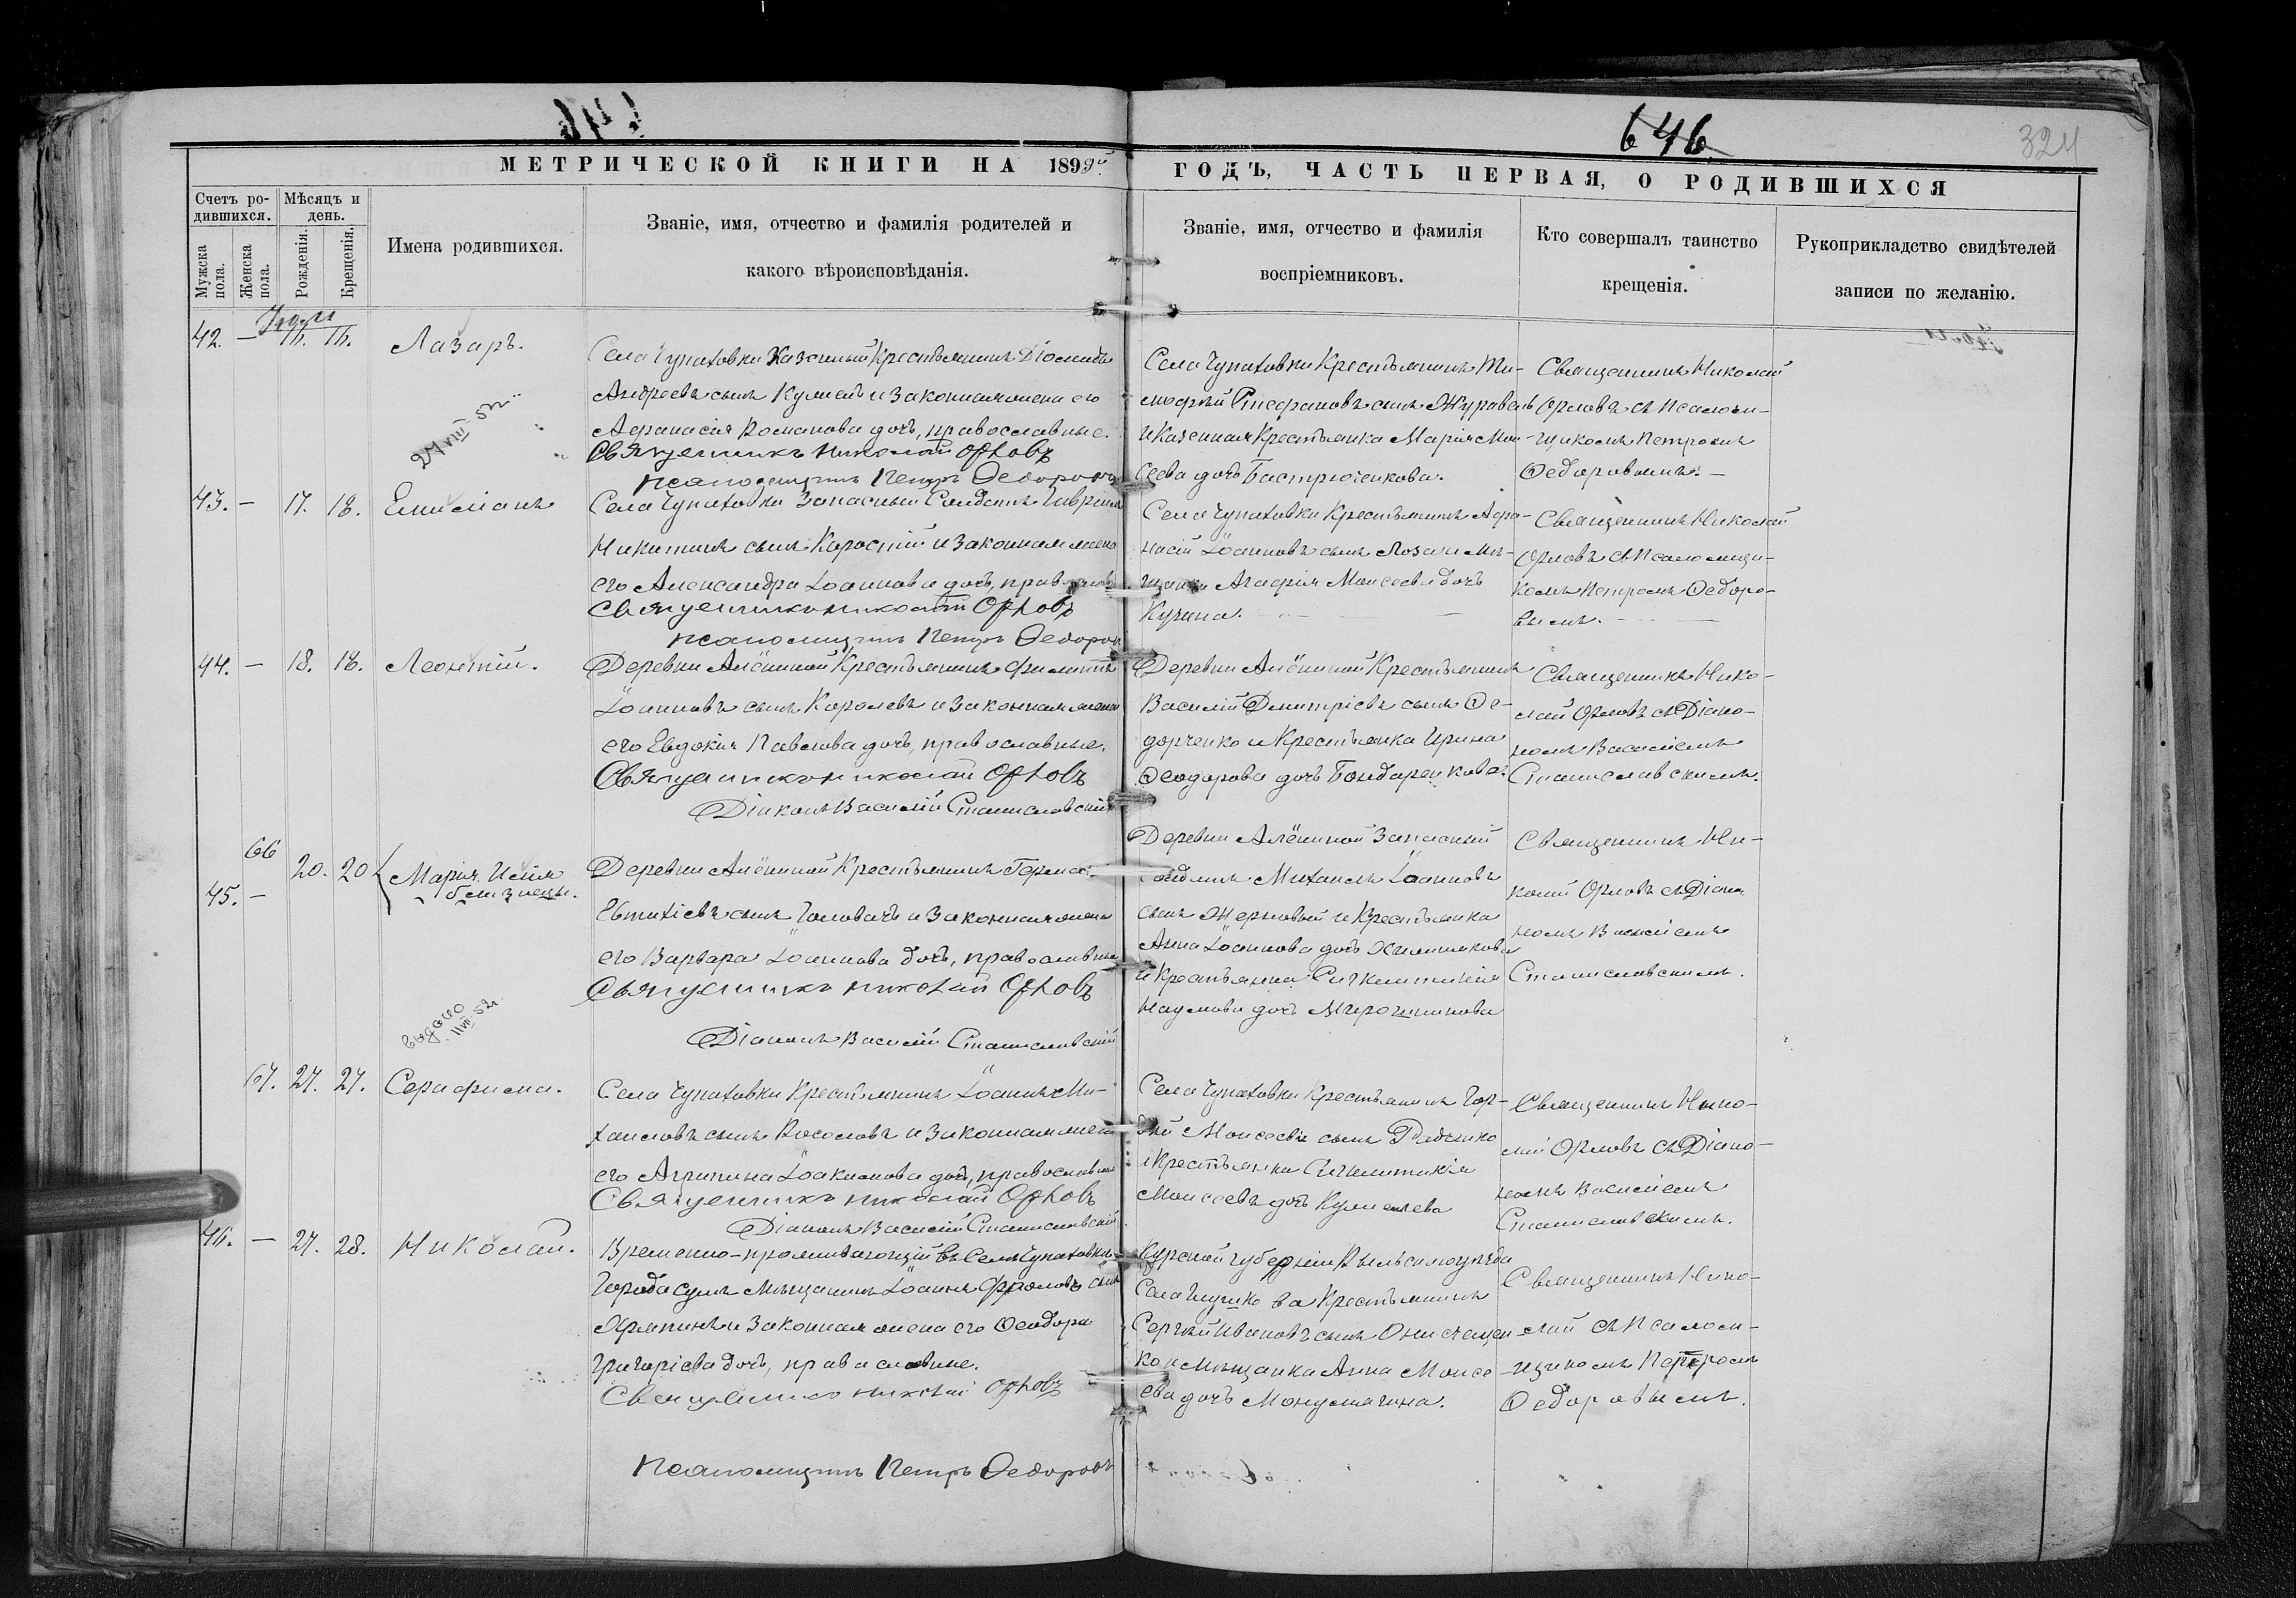 646
324
МЕТРИЧЕСКОЙ КНИГИ НА 1899й
ГОДЪ, ЧАСТЬ ПЕРВАЯ, О РОДИВШИХСЯ
Счетъ ро-
дившихся.
Мѣсяцъ и
день.
Мужска
пола.
Женска
пола.
Рожденія.
Крещенія.
Имена родившихся.
Званіе, имя, отчество и фамилія родителей и
какого вѣроисповѣданія.
Званіе, имя, отчество и фамилія
воспріемниковъ.
Кто совершалъ таинство
крещенія.
Рукоприкладство свидѣтелей
записи по желанію.
42. —
Лазарь.
Села Чупаховки Казенный Крестьянинъ Діомидъ
Андреевъ сынъ и законная жена его
Афанасія Романова дочь, православные.
Священникъ Николай Орловъ
Псаломщикъ Петръ Федоровъ
Села Чупаховки Крестьянинъ Ти-
мофѣй Стефановъ сынъ Журавель
и Казенная Крестьянка Марія Мои-
сеева дочь Бастрюченкова.
Священникъ Николай
Орловъ съ Псаломщи-
комъ Петромъ
Федоровымъ. —
43. — 17. 18. Емиліанъ
Села Чупаховки Запасный Солдатъ Гавріилъ
Никитинъ сынъ Коростій и законная жена
его Александра Іоаннова дочь, правосл
Священникъ Николай Орловъ
Псаломщикъ Петръ Федоровъ
Села Чупаховки Крестьянинъ Афа-
насій Іоанновъ сынъ Лозъ и Мѣ-
щанка Агафія Моисеева дочь
Священникъ Николай
Орловъ съ Псаломщи-
комъ Петромъ Федоро-
вымъ. —
44. — 18. 18. Леонтій.
Деревни Алёниной Крестьянинъ Филиппъ
Іоанновъ сынъ Королевъ и законная жена
его Евдокія Павлова дочь, православные.
Священникъ Николай Орловъ
Діаконъ Василій Станиславскій
Деревни Алёниной Крестьянинъ
Василій Дмитріевъ сынъ Фе-
дорченко и Крестьянка Ирина
Феодорова дочь Бондаренкова.
Священникъ Нико-
лай Орловъ съ Діако-
номъ Василіемъ
Станиславскимъ.
66
45. —
20. 20
Марія, Исаія
близнецы.
Деревни Алёниной Крестьянинъ
Евтихіевъ сынъ Головачъ и законная жена
его Варвара Іоаннова дочь, православные
Священникъ Николай Орловъ
Діаконъ Василій Станиславскій
Деревни Алёниной Запасный
Солдатъ Михаилъ Іоанновъ
сынъ Жерновый и Крестьянка
Анна Іоаннова дочь
и Крестьянка Синклитикія
Наумова дочь Мирошникова
Священникъ Ни-
колай Орловъ съ Діако
номъ Василіемъ
Станиславскимъ.
выдано
67. 27. 27. Серафима.
Села Чупаховки Крестьянинъ Іоаннъ Ми-
хаиловъ сынъ и законная жена
его Агрипина Іоакимова дочь, православные
Священникъ Николай Орловъ
Діаконъ Василій Станиславскій
Села Чупаховки Крестьянинъ Гор-
дѣй Моисеевъ сынъ Радченко
и Крестьянка Синклитикія
Моисеева дочь
Священникъ Нико-
лай Орловъ съ Діако-
номъ Василіемъ
Станиславскимъ.
46. — 27. 28. Николай.
Временно-проживающій въ Селѣ Чупаховкѣ
Города Сумъ Мѣщанинъ Іоаннъ Фроловъ сынъ
и законная жена его Феодора
Григоріева дочь, православные.
Священникъ Николай Орловъ
Псаломщикъ Петръ Федоровъ
Курской губерніи Рыльскаго уѣзда
Села Глушкова Крестьянинъ
Сергѣй Ивановъ сынъ Онисченко
и Мѣщанка Анна Моисе-
ева дочь
Священникъ Нико-
лай съ Псалом-
щикомъ Петромъ
Федоровымъ.